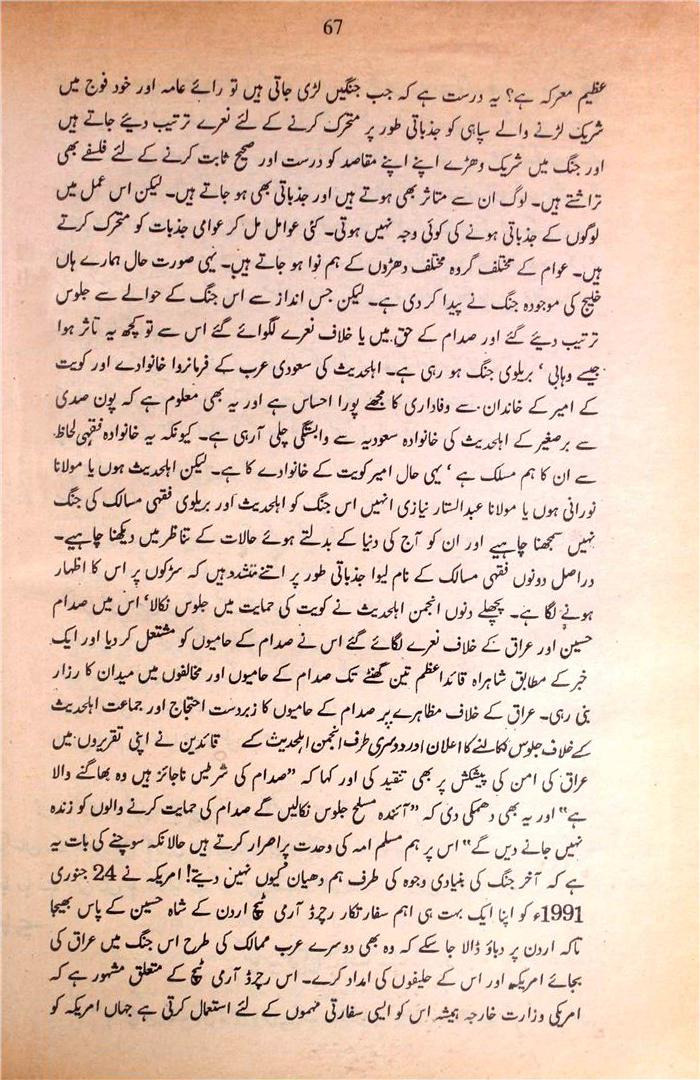 67
عظیم معرکہ ہے؟ یہ درست ہے کہ جب جنگیں لڑی جاتی ہیں تو رائے عامہ اور خود فوج میں
شریک لڑنے والے سپاہی کو جذباتی طور پر متحرک کرنے کے لئے نعرے ترتیب دیئے جاتے ہیں
اور جنگ میں شریک دھڑے اپنے اپنے مقاصد کو درست اور صحیح ثابت کرنے کے لئے فلسفے بھی
تراشتے ہیں۔ لوگ ان سے متاثر بھی ہوتے ہیں اور جذباتی بھی ہو جاتے ہیں۔ لیکن اس عمل میں
لوگوں کے جذباتی ہونے کی کوئی وجہ نہیں ہوتی۔ کئی عوامل مل کر عوامی جذبات کو متحرک کرتے
ہیں۔ عوام کے مختلف گروہ مختلف دھڑوں کے ہم نوا ہو جاتے ہیں۔ یہی صورت حال ہمارے ہاں
خلیج کی موجودہ جنگ نے پیدا کر دی ہے۔ لیکن جس انداز سے اس جنگ کے حوالے سے جلوس
ترتیب دیئے گئے اور صدام کے حق میں یا خلاف نعرے لگوائے گئے اس سے تو کچھ یہ تاثر ہوا
جیسے وہابی ' بریلوی جنگ ہو رہی ہے۔ اہلحدیث کی سعودی عرب کے فرمانروا خانوادے اور کویت
کے امیر کے خاندان سے وفاداری کا مجھے پورا احساس ہے اور یہ بھی معلوم ہے کہ پون صدی
سے برصغیر کے اہلحدیث کی خانوادہ سعودیہ سے وابستگی چلی آرہی ہے۔ کیونکہ یہ خانوادہ فقہی لحاظ
سے ان کا ہم مسلک ہے ' یہی حال امیر کویت کے خانوادے کا ہے۔ لیکن اہلحدیث ہوں یا مولانا
نورانی ہوں یا مولانا عبدالستار نیازی انہیں اس جنگ کو اہلحدیث اور بریلوی فقہی مسالک کی جنگ
نہیں سمجھنا چاہیے اور ان کو آج کی دنیا کے بدلتے ہوئے حالات کے تناظر میں دیکھنا چاہیے۔
دراصل دونوں فقہی مسالک کے نام لیوا جذباتی طور پر اتنے متشدد ہیں کہ سڑکوں پر اس کا اظہار
ہونے لگا ہے۔ پچھلے دنوں انجمن اہلحدیث نے کویت کی حمایت میں جلوس نکالا' اس میں صدام
حسین اور عراق کے خلاف نعرے لگائے گئے اس نے صدام کے حامیوں کو مشتعل کر دیا اور ایک
خبر کے مطابق شاہراہ قائداعظم تین گھنٹے تک صدام کے حامیوں اور مخالفوں میں میدان کا رزار
بنی رہی۔ عراق کے خلاف مظاہرے پر صدام کے حامیوں کا زبردست احتجاج اور جماعت اہلحدیث
کے خلاف جلوس نکالنے کا اعلان اور دوسری طرف انجمن اہلحدیث کے قائدین نے اپنی تقریروں میں
عراق کی امن کی پیشکش پر بھی تنقید کی اور کہا کہ "صدام کی شرطیں ناجائز ہیں وہ بھاگنے والا
ہے" اور یہ بھی دھمکی دی کہ "آئندہ مسلح جلوس نکالیں گے صدام کی حمایت کرنے والوں کو زندہ
نہیں جانے دیں گے" اس پر ہم مسلم امہ کی وحدت پر اصرار کرتے ہیں حالانکہ سوچنے کی بات یہ
ہے کہ آخر جنگ کی بنیادی وجوہ کی طرف ہم دھیان کیوں نہیں دیتے! امریکہ نے 24 جنوری
1991ء کو اپنا ایک بہت ہی اہم سفارتکار رچرڈ آرمی ٹیج اردن کے شاہ حسین کے پاس بھیجا
تاکہ اردن پر دباؤ ڈالا جا سکے کہ وہ بھی دوسرے عرب ممالک کی طرح اس جنگ میں عراق کی
بجائے امریکہ اور اس کے حلیفوں کی امداد کرے۔ اس رچرڈ آرمی ٹیج کے متعلق مشہور ہے کہ
امریکی وزارت خارجہ ہمیشہ اس کو ایسی سفارتی مہموں کے لئے استعمال کرتی ہے جہاں امریکہ کو